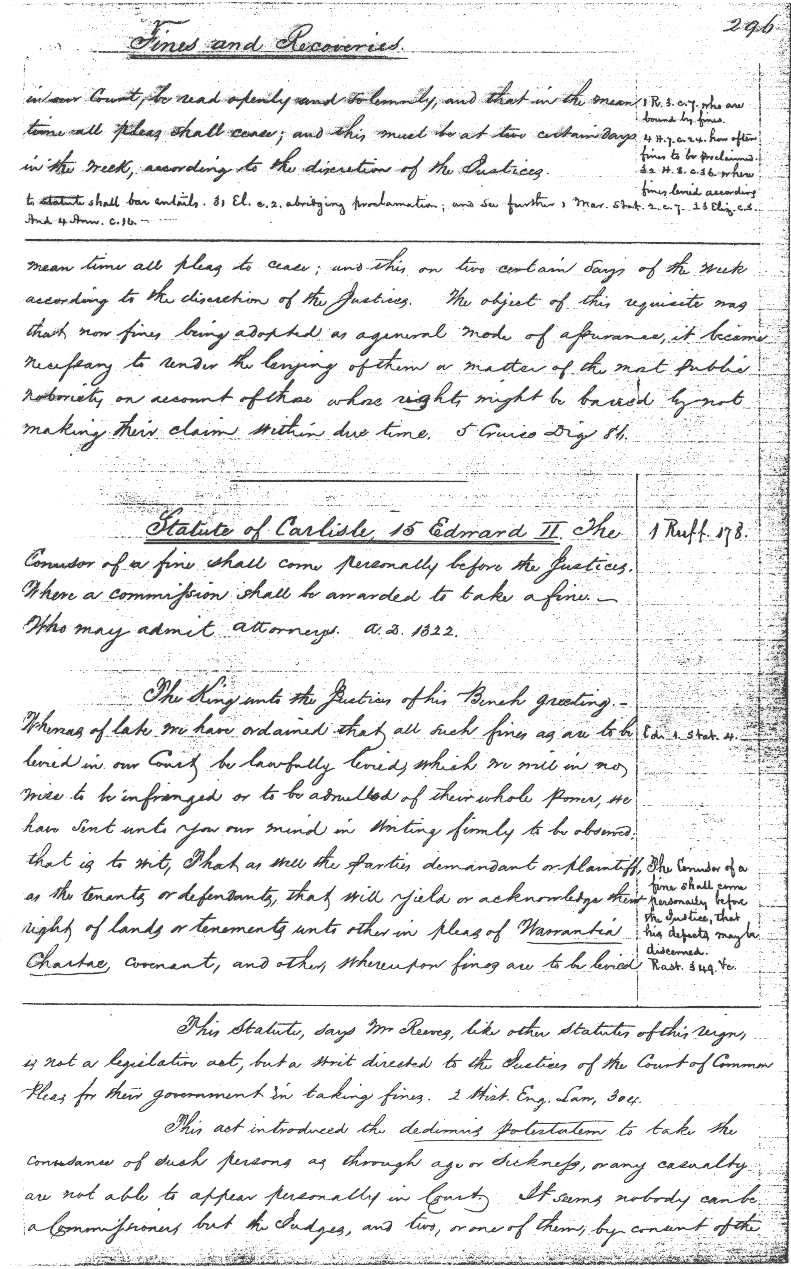 296
Fines and Recoveries.
in our Court, be read openly and solemnly, and that in the mean
time all pleas shall cease; and this must be at two certain days
in the week, according to the discretion of the Justices.
1 R. 3. c. 7. who are
bound by fines.
4 H. 7. c. 24. how often
fines to be proclaimed.
32 H. 8. c. 36. where
fines levied according
to statute shall bar entails. 31 El. c. 2. abridging proclamation; and see further 1 Mar. Stat. 2. c. 7. 23 Eliz. c. 3.
And 4 Ann. c. 16. —
mean time all pleas to cease; and this on two certain days of the week
according to the discretion of the Justices. The object of this requisite was
that now fines being adopted as a general mode of assurance, it became
necessary to render the levying of them a matter of the most public
notoriety on account of those whose rights might be barred by not
making their claim within due time. 5 Cruise Dig 86.
Statute of Carlisle, 15 Edward II. The
1 Ruff. 178.
Conusor of a fine shall come personally before the Justices.
Where a commission shall be awarded to take a fine. —
Who may admit attorneys. A.D. 1322.
The King unto the Justices of his Bench greeting. –
Whereas of late we have ordained that all such fines as are to be
Edw. 1. Stat. 4.
levied in our Court, be lawfully levied, which we will in no
wise to be infringed or to be adnulled of their whole power, we
have sent unto you our mind in writing firmly to be observed:
that is to wit, That as well the parties demandant or plaintiff,
as the tenants or defendants, that will yield or acknowledge their
right of lands or tenements unto other in pleas of Warrantia
Chartae, covenant, and other, whereupon fines are to be levied
The Conusor of a
fine shall come
personally before
the Justice, that
his defects may be
discerned.
Rast. 349. &c.
This Statute, says Mr Reeves, like other Statutes of this reign,
is not a legislative act, but a writ directed to the Justices of the Court of Common
Pleas for their government in taking fines. 2 Hist. Eng. Law, 304.
This act introduced the dedimus potestatem to take the
conusance of such persons as through age or sickness, or any casualty
are not able to appear personally in Court. It seems nobody can be
a Commissioner, but the Judges, and two, or one of them, by consent of the